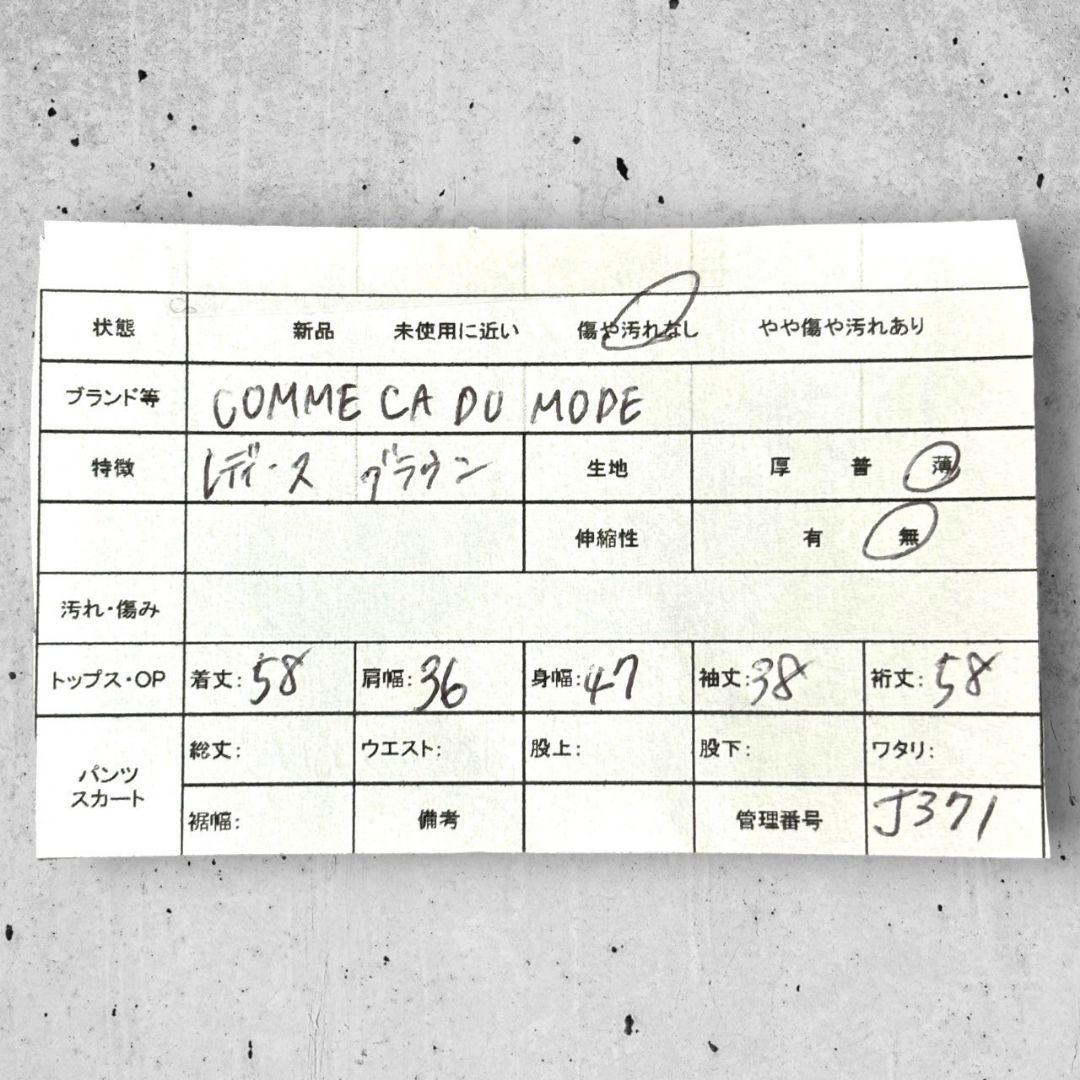 状態 新品 未使用に近い 傷や汚れなし やや傷や汚れあり
ブランド等 COMME CA DU MODE
特徴 レディース ブラウン 生地 厚 普 薄
伸縮性 有 無
汚れ・傷み
トップス・OP 着丈:58 肩幅:36 身幅:47 袖丈:38 裄丈:58
パンツ スカート 総丈: ウエスト: 股上: 股下: ワタリ:
裾幅: 備考 管理番号 J371